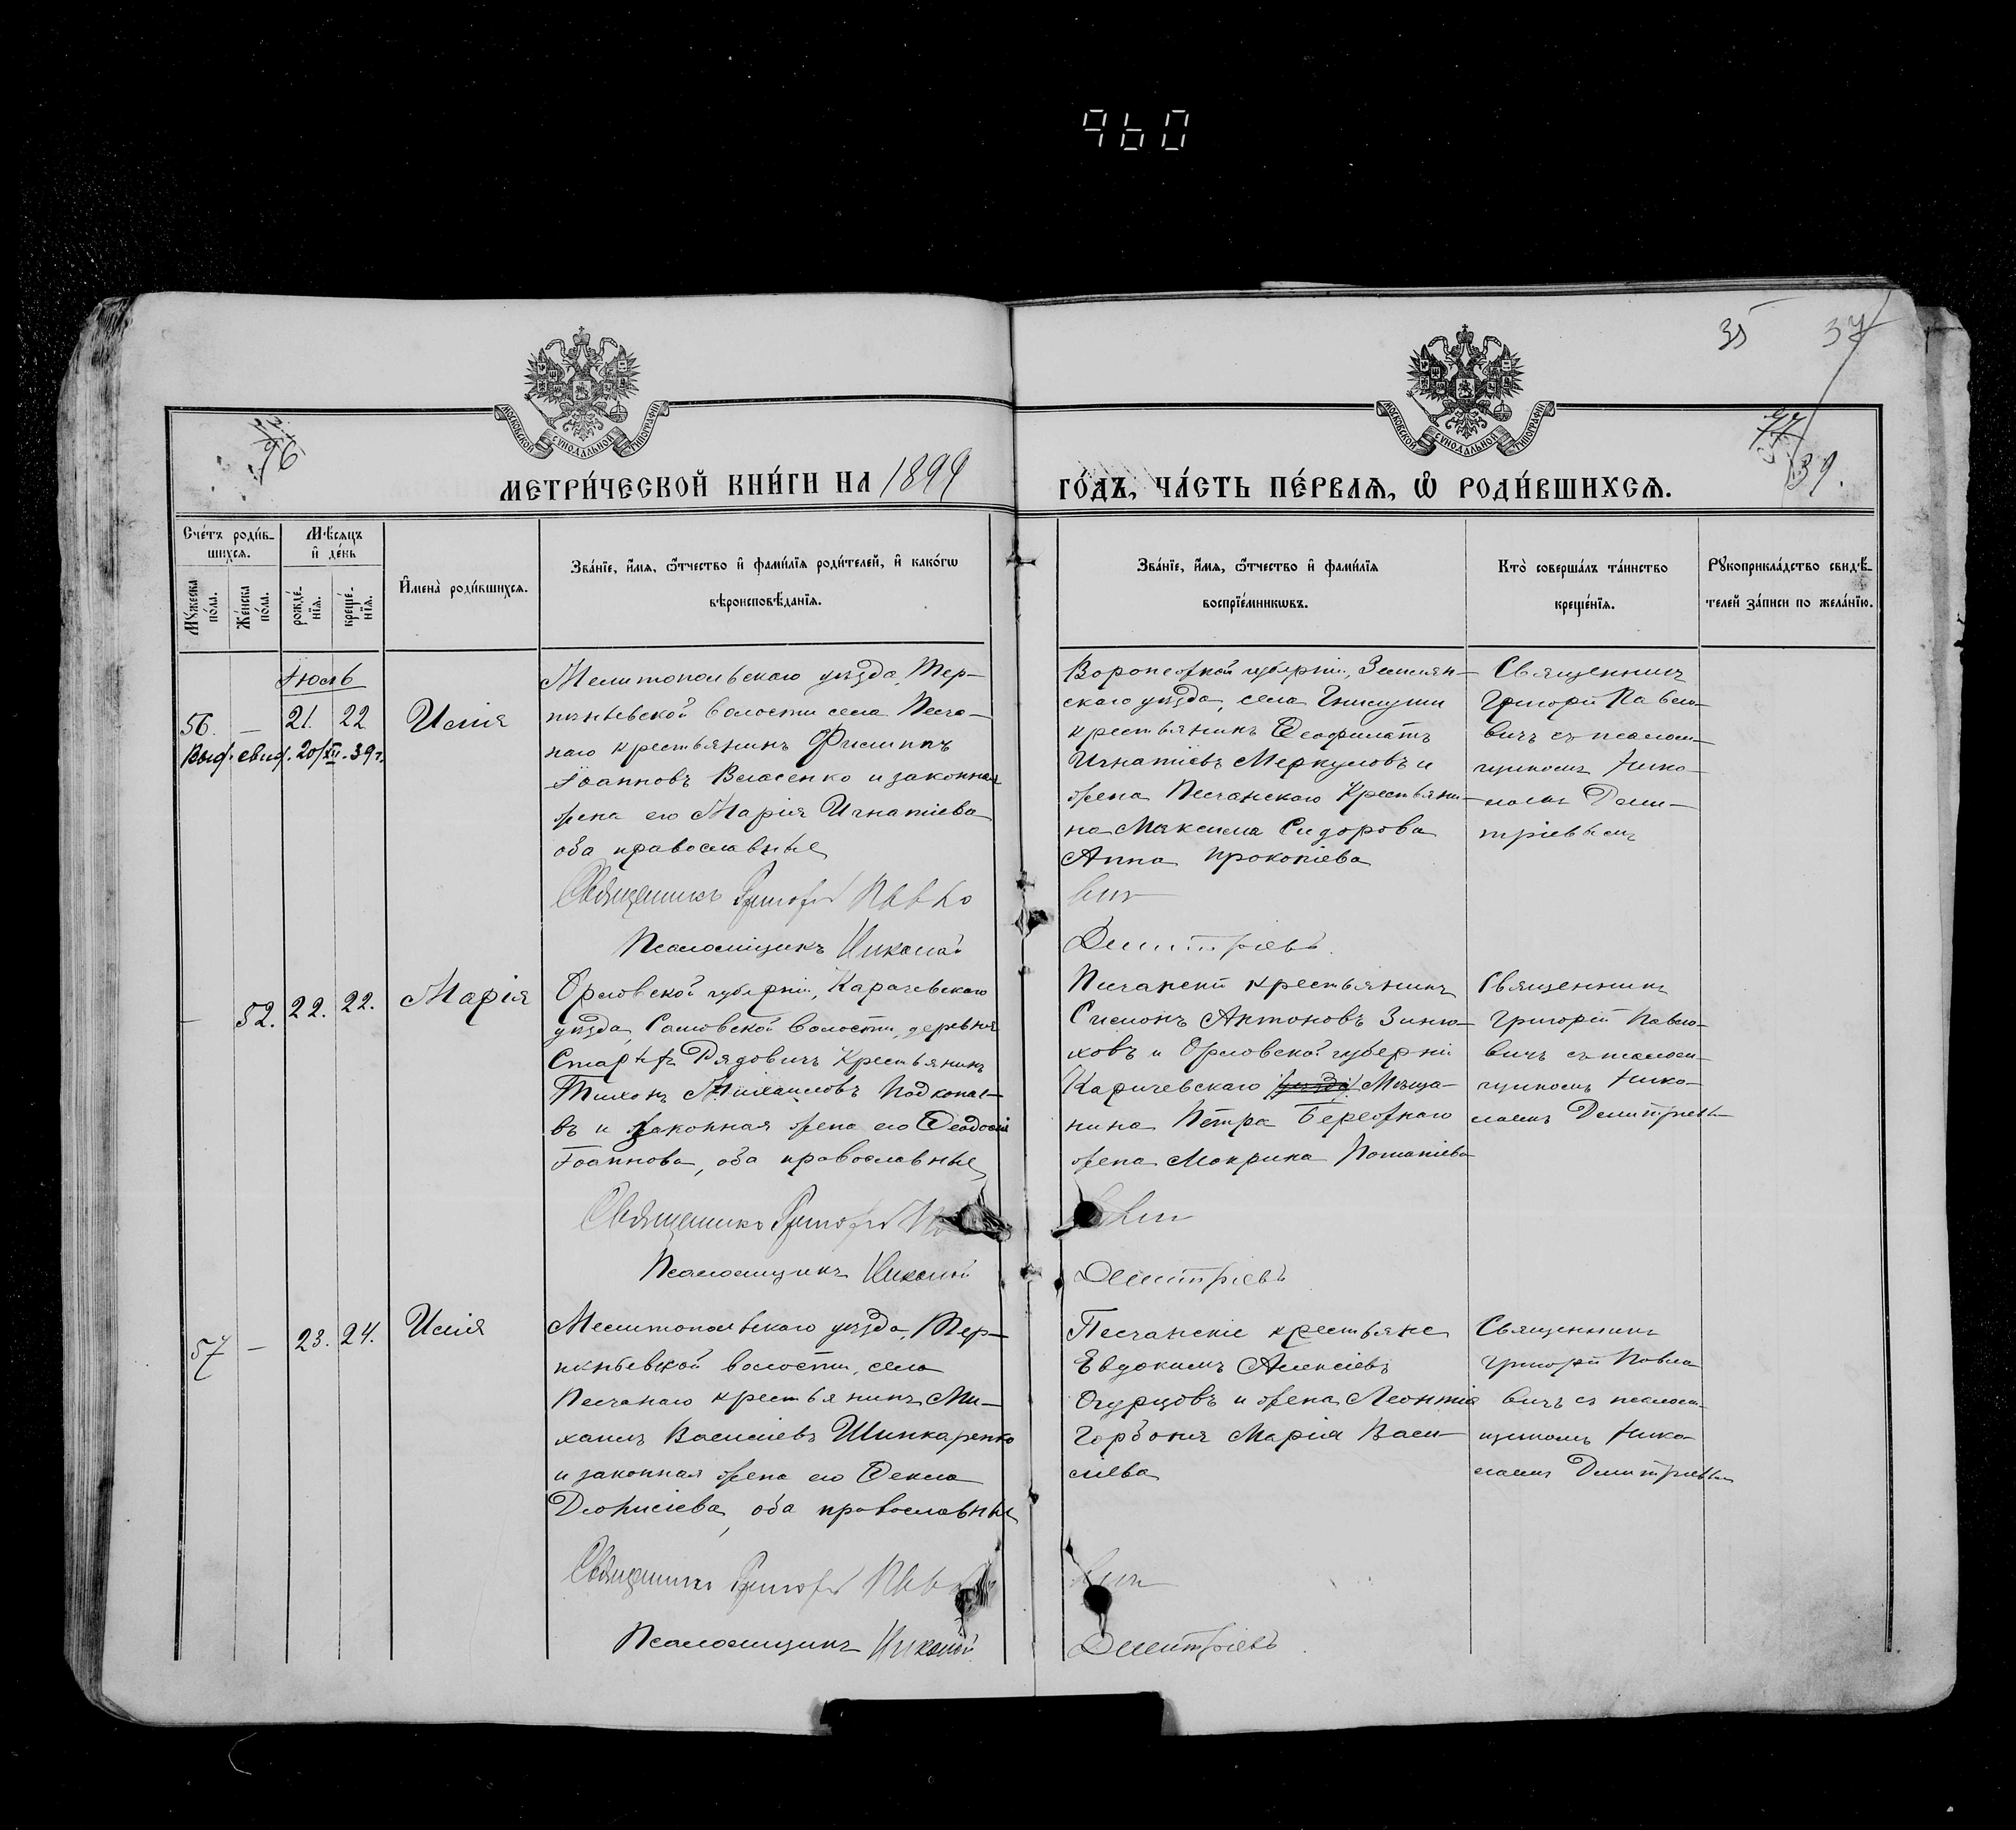 960
35 37
МОСКОВСКОЙ СУНОДАЛЬНОЙ ТИПОГРАФІИ
МОСКОВСКОЙ СУНОДАЛЬНОЙ ТИПОГРАФІИ
76
39.
МЕТРИ́ЧЕСКОЙ КНИ́ГИ НА 1899
ГО́ДЪ, ЧА́СТЬ ПЕ́РВАѦ, Ѡ РОДИ́ВШИХСѦ.
Сче́тъ роди́в-
шихсѧ.
Мꙋ́жеска по́ла.
Же́нска по́ла.
Мѣ́сѧцъ
и҆ де́нь
рожде́-
нїѧ.
креще́-
нїѧ.
И҆мена̀ роди́вшихсѧ.
Зва́нїе, и҆́мѧ, ѻ҆́тчество и҆ фами́лїѧ роди́телей, и҆ како́гѡ
вѣроисповѣ́данїѧ.
Зва́нїе, и҆́мѧ, ѻ҆́тчество и҆ фами́лїѧ
воспрїе́мникѡвъ.
Кто̀ соверша́лъ та́инство
креще́нїѧ.
Рꙋкоприкла́дство свидѣ́-
телей за́писи по жела́нїю.
Іюль
56. — 21. 22 Илія
Выд. свид. 20/XII-39г.
Мелитопольскаго уѣзда, Тер-
пѣньевской волости села Песча-
наго крестьянинъ Филиппъ
Іоанновъ Власенко и законная
жена его Марія Игнатіева
оба православные
Священникъ Григорій Павло
Псаломщикъ Николай
Воронежской губерніи, Землян-
скаго уѣзда, села
крестьянинъ Ѳеофилактъ
Игнатіевъ Меркуловъ и
жена Песчанскаго крестьяни-
на Максима Сидорова
Анна Прокопіева
вичъ
Димитріевъ.
Священникъ
Григорій Павло-
вичъ съ псалом-
щикомъ Нико-
лаемъ Дими-
тріевымъ
— 52. 22. 22. Марія
Орловской губерніи, Карачевскаго
уѣзда, волости, деревни
крестьянинъ
Тихонъ Михаиловъ Подкопае-
въ и законная жена его Ѳеодосія
Іоаннова, оба православные
Священникъ Григорій
Псаломщикъ Николай
Песчанскій крестьянинъ
Симонъ Антоновъ Зиню-
ховъ и Орловской губерніи
Карачевскаго уѣзда Мѣща-
нина Петра Бережнаго
жена Макрина
вичъ
Димитріевъ
Священникъ
Григорій Павло-
вичъ съ псалом-
щикомъ Нико-
лаемъ Димитріевы
57 — 23. 24. Илія
Мелитопольскаго уѣзда, Тер-
пѣньевской волости, села
Песчанаго крестьянинъ Ми-
хаилъ Василіевъ Шинкаренко
и законная жена его Ѳекла
Діонисіева, оба православные
Священникъ Григорій Павло
Псаломщикъ Николай
Песчанскіе крестьяне
Евдокимъ Алексіевъ
Огурцовъ и жена Леонтія
Горбоня Марія Васи-
ліева
вичъ
Димитріевъ.
Священникъ
Григорій Павло
вичъ съ псалом-
щикомъ Нико-
лаемъ Димитріевы